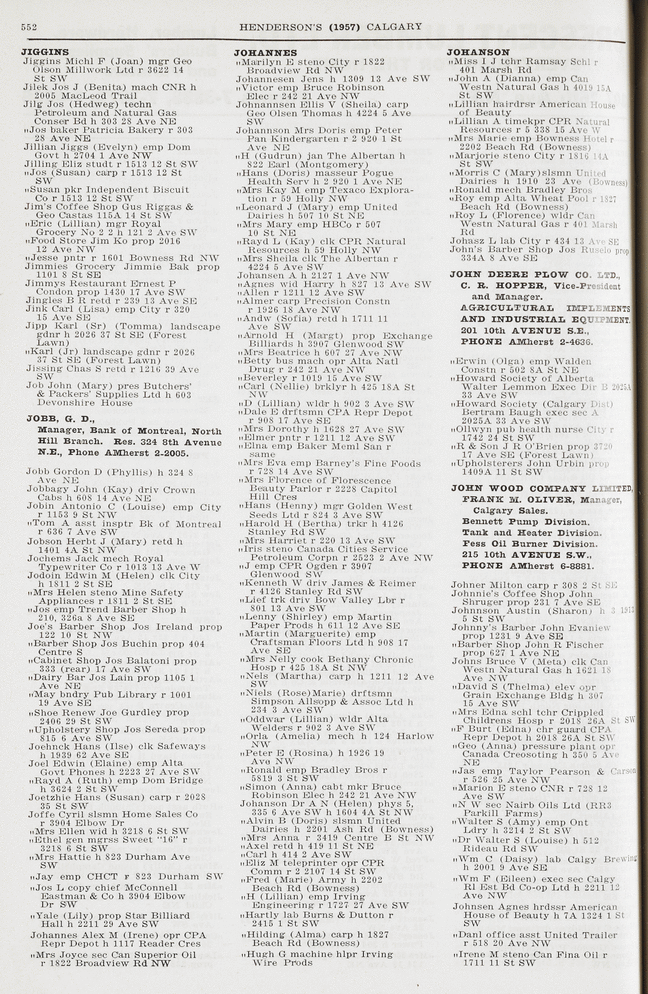 552
HENDERSON'S (1957) CALGARY
JIGGINS
Jiggins Michl F (Joan) mgr Geo
Olson Millwork Ltd r 3622 14
St SW
Jilek Jos J (Benita) mach CNR h
2005 MacLeod Trail
Jilg Jos (Hedweg) techn
Petroleum and Natural Gas
Conser Bd h 303 28 Ave NE
„Jos baker Patricia Bakery r 303
28 Ave NE
Jillian Jiggs (Evelyn) emp Dom
Govt h 2704 1 Ave NW
Jilling Eliz studt r 1513 12 St SW
„Jos (Susan) carp r 1513 12 St
SW
„Susan pkr Independent Biscuit
Co r 1513 12 St SW
Jim's Coffee Shop Gus Riggas &
Geo Castas 115A 14 St SW
„Eric (Lillian) mgr Royal
Grocery No 2 2 h 121 2 Ave SW
„Food Store Jim Ko prop 2016
12 Ave NW
„Jesse pntr r 1601 Bowness Rd NW
Jimmies Grocery Jimmie Bak prop
1101 8 St SE
Jimmys Restaurant Ernest P
Condon prop 1430 17 Ave SW
Jingles B R retd r 239 13 Ave SE
Jink Carl (Lisa) emp City r 320
15 Ave SE
Jipp Karl (Sr) (Tomma) landscape
gdnr h 2026 37 St SE (Forest
Lawn)
„Karl (Jr) landscape gdnr r 2026
37 St SE (Forest Lawn)
Jissing Chas S retd r 1216 39 Ave
SW
Job John (Mary) pres Butchers'
& Packers' Supplies Ltd h 603
Devonshire House
JOBB, G. D.,
Manager, Bank of Montreal, North
Hill Branch. Res. 324 8th Avenue
N.E., Phone AMherst 2-2005.
Jobb Gordon D (Phyllis) h 324 8
Ave NE
Jobbagy John (Kay) driv Crown
Cabs h 608 14 Ave NE
Jobin Antonio C (Louise) emp City
r 1153 9 St NW
„Tom A asst insptr Bk of Montreal
r 636 7 Ave SW
Jobson Herbt J (Mary) retd h
1401 4A St NW
Jochems Jack mech Royal
Typewriter Co r 1013 13 Ave W
Jodoin Edwin M (Helen) clk City
h 1811 2 St SE
„Mrs Helen steno Mine Safety
Appliances r 1811 2 St SE
„Jos emp Trend Barber Shop h
210, 326a 8 Ave SE
Joe's Barber Shop Jos Ireland prop
122 10 St NW
„Barber Shop Jos Buchin prop 404
Centre S
„Cabinet Shop Jos Balatoni prop
333 (rear) 17 Ave SW
„Dairy Bar Jos Lain prop 1105 1
Ave NE
„May bndry Pub Library r 1001
19 Ave SE
„Shoe Renew Joe Gurdley prop
2406 29 St SW
„Upholstery Shop Jos Sereda prop
815 6 Ave SW
Joehnck Hans (Ilse) clk Safeways
h 1939 62 Ave SE
Joel Edwin (Elaine) emp Alta
Govt Phones h 2223 27 Ave SW
„Rayd A (Ruth) emp Dom Bridge
h 3624 2 St SW
Joetzhie Hans (Susan) carp r 2028
35 St SW
Joffe Cyril slsmn Home Sales Co
r 3904 Elbow Dr
„Mrs Ellen wid h 3218 6 St SW
„Ethel gen mgrss Sweet "16" r
3218 6 St SW
„Mrs Hattie h 823 Durham Ave
SW
„Jay emp CHCT r 823 Durham SW
„Jos L copy chief McConnell
Eastman & Co h 3904 Elbow
Dr SW
„Yale (Lily) prop Star Billiard
Hall h 2211 29 Ave SW
Johannes Alex M (Irene) opr CPA
Repr Depot h 1117 Reader Cres
„Mrs Joyce sec Can Superior Oil
r 1822 Broadview Rd NW
JOHANNES
„Marilyn E steno City r 1822
Broadview Rd NW
Johannesen Jens h 1309 13 Ave SW
„Victor emp Bruce Robinson
Elec r 242 21 Ave NW
Johnannsen Ellis V (Sheila) carp
Geo Olsen Thomas h 4224 5 Ave
SW
Johannson Mrs Doris emp Peter
Pan Kindergarten r 2 920 1 St
Ave NE
„H (Gudrun) jan The Albertan h
822 Earl (Montgomery)
„Hans (Doris) masseur Pogue
Health Serv h 2 920 1 Ave NE
„Mrs Kay M emp Texaco Explora-
tion r 59 Holly NW
„Leonard J (Mary) emp United
Dairies h 507 10 St NE
„Mrs Mary emp HBCo r 507
10 St NE
„Rayd L (Kay) clk CPR Natural
Resources h 59 Holly NW
„Mrs Sheila clk The Albertan r
4224 5 Ave SW
Johansen A h 2127 1 Ave NW
„Agnes wid Harry h 827 13 Ave SW
„Allen r 1211 12 Ave SW
„Almer carp Precision Constn
r 1926 18 Ave NW
„Andw (Sofia) retd h 1711 11
Ave SW
„Arnold H (Margt) prop Exchange
Billiards h 3907 Glenwood SW
„Mrs Beatrice h 607 27 Ave NW
„Betty bus mach opr Alta Natl
Drug r 242 21 Ave NW
„Beverley r 1019 15 Ave SW
„Carl (Nellie) brklyr h 425 18A St
NW
„D (Lillian) wldr h 902 3 Ave SW
„Dale E drftsmn CPA Repr Depot
r 908 17 Ave SE
„Mrs Dorothy h 1628 27 Ave SW
„Elmer pntr r 1211 12 Ave SW
„Elna emp Baker Meml San r
same
„Mrs Eva emp Barney's Fine Foods
r 728 14 Ave SW
„Mrs Florence of Florescence
Beauty Parlor r 2228 Capitol
Hill Cres
„Hans (Henny) mgr Golden West
Seeds Ltd r 824 3 Ave SW
„Harold H (Bertha) trkr h 4126
Stanley Rd SW
„Mrs Harriet r 220 13 Ave SW
„Iris steno Canada Cities Service
Petroleum Corpn r 2523 2 Ave NW
„J emp CPR Ogden r 3907
Glenwood SW
„Kenneth W driv James & Reimer
r 4126 Stanley Rd SW
„Lief trk driv Bow Valley Lbr r
801 13 Ave SW
„Lenny (Shirley) emp Martin
Paper Prods h 611 12 Ave SW
„Martin (Marguerite) emp
Craftsman Floors Ltd h 908 17
Ave SE
„Mrs Nelly cook Bethany Chronic
Hosp r 425 18A St NW
„Nels (Martha) carp h 1211 12 Ave
SW
„Niels (Rose)Marie) drftsmn
Simpson Allsopp & Assoc Ltd h
234 3 Ave SW
„Oddwar (Lillian) wldr Alta
Welders r 902 3 Ave SW
„Orla (Amelia) mech h 124 Harlow
NW
„Peter E (Rosina) h 1926 19
Ave NW
„Ronald emp Bradley Bros r
5819 3 St SW
„Simon (Anna) cabt mkr Bruce
Robinson Elec h 242 21 Ave NW
Johanson Dr A N (Helen) phys 5,
335 6 Ave SW h 1604 4A St NW
„Alvin B (Doris) slsmn United
Dairies h 2201 Ash Rd (Bowness)
„Mrs Anna r 3419 Centre B St NW
„Axel retd h 419 11 St NE
„Carl h 414 2 Ave SW
„Eliz M teleprinter opr CPR
Comm r 2 2107 14 St SW
„Fred (Marie) Army h 2202
Beach Rd (Bowness)
„H (Lillian) emp Irving
Engineering r 1727 27 Ave SW
„Hartly lab Burns & Dutton r
2415 1 St SW
„Hilding (Alma) carp h 1827
Beach Rd (Bowness)
„Hugh G machine hlpr Irving
Wire Prods
JOHANSON
„Miss I J tchr Ramsay Schl r
401 Marsh Rd
„John A (Dianna) emp Can
Westn Natural Gas h 4019 15A
St SW
„Lillian hairdrsr American House
of Beauty
„Lillian A timekpr CPR Natural
Resources r 5 338 15 Ave W
„Mrs Marie emp Bowness Hotel r
2202 Beach Rd (Bowness)
„Marjorie steno City r 1816 14A
St SW
„Morris C (Mary)slsmn United
Dairies h 1910 23 Ave (Bowness)
„Ronald mech Bradley Bros
„Roy emp Alta Wheat Pool r 1827
Beach Rd (Bowness)
„Roy L (Florence) wldr Can
Westn Natural Gas r 401 Marsh
Rd
Johasz L lab City r 434 13 Ave SE
John's Barber Shop Jos Ruscio prop
334A 8 Ave SE
JOHN DEERE PLOW CO. LTD.,
C. R. HOPPER, Vice-President
and Manager.
AGRICULTURAL IMPLEMENTS
AND INDUSTRIAL EQUIPMENT.
201 10th AVENUE S.E.,
PHONE AMherst 2-4636.
„Erwin (Olga) emp Walden
Constn r 502 8A St NE
„Howard Society of Alberta
Walter Lemmon Exec Dir B 2025A
33 Ave SW
„Howard Society (Calgary Dist)
Bertram Baugh exec sec A
2025A 33 Ave SW
„Ollwyn pub health nurse City r
1742 24 St SW
„R & Son J R O'Brien prop 3720
17 Ave SE (Forest Lawn)
„Upholsterers John Urbin prop
1409A 11 St SW
JOHN WOOD COMPANY LIMITED,
FRANK M. OLIVER, Manager,
Calgary Sales.
Bennett Pump Division.
Tank and Heater Division.
Fess Oil Burner Division.
215 10th AVENUE S.W.,
PHONE AMherst 6-8881.
Johner Milton carp r 308 2 St SE
Johnnie's Coffee Shop John
Shruger prop 231 7 Ave SE
Johnnson Austin (Sharon) h 3
5 St SW
Johnny's Barber John Evaniew
prop 1231 9 Ave SE
„Barber Shop John R Fischer
prop 627 1 Ave NE
Johns Bruce V (Meta) clk Can
Westn Natural Gas h 1621 18
Ave NW
„David S (Thelma) elev opr
Grain Exchange Bldg h 307
15 Ave SW
„Mrs Edna schl tchr Crippled
Childrens Hosp r 2018 26A St SW
„F Burt (Edna) chr guard CPA
Repr Depot h 2018 26A St SW
„Geo (Anna) pressure plant opr
Canada Creosoting h 350 5 Ave
NE
„Jas emp Taylor Pearson & Carson
r 526 25 Ave NW
„Marion E steno CNR r 728 12
Ave SW
„N W sec Nairb Oils Ltd (RR3
Parkill Farms)
„Walter S (Amy) emp Ont
Ldry h 3214 2 St SW
„Dr Walter S (Louise) h 512
Rideau Rd SW
„Wm C (Daisy) lab Calgy Brewing
h 2001 9 Ave SE
„Wm F (Eileen) exec sec Calgy
Rl Est Bd Co-op Ltd h 2211 12
Ave NW
Johnsen Agnes hrdssr American
House of Beauty h 7A 1324 1 St
SW
„Danl office asst United Trailer
r 518 20 Ave NW
„Irene M steno Can Fina Oil r
1711 11 St SW